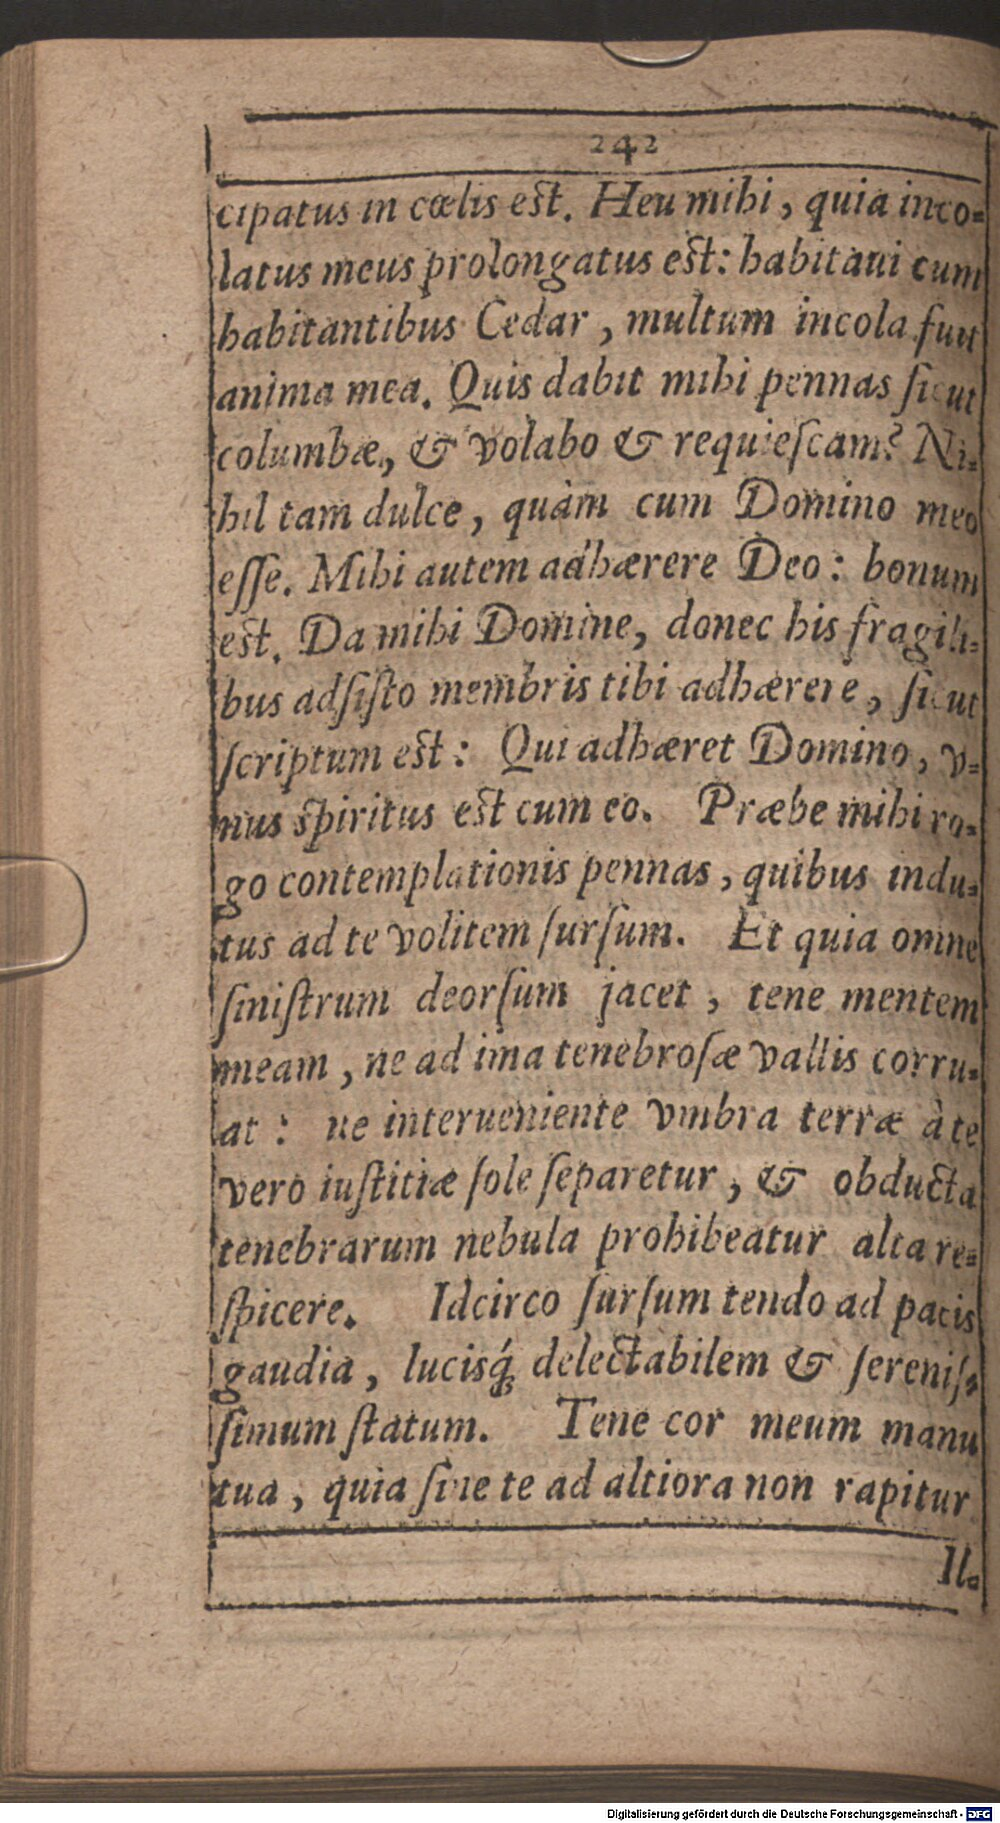 242
cipatus in cœlis est. Heu mihi, quia inco-
latus meus prolongatus est: habitaui cum
habitantibus Cedar, multum incola fuit
anima mea. Quis dabit mihi pennas ſicut
columbæ, & volabo & requieſcam? Ni-
hil tam dulce, quàm cum Domino meo
eſſe. Mihi autem adhærere Deo: bonum
est. Da mihi Domine, donec his fragili-
bus adſiſto membris tibi adhærere, ſicut
ſcriptum est: Qui adhæret Domino, v-
nus spiritus est cum eo. Præbe mihi ro-
go contemplationis pennas, quibus indu-
tus ad te volitem ſurſum. Et quia omne
ſiniſtrum deorſum jacet, tene mentem
meam, ne ad ima tenebroſæ vallis corru-
at: ne interueniente vmbra terræ à te
vero iuſtitiæ ſole ſeparetur, & obducta
tenebrarum nebula prohibeatur alta re-
ſpicere. Idcirco ſurſum tendo ad pacis
gaudia, lucisq́; delectabilem & ſereniſ-
ſimum ſtatum. Tene cor meum manu
tua, quia ſine te ad altiora non rapitur
Il-
Digitalisierung gefördert durch die Deutsche Forschungsgemeinschaft - DFG